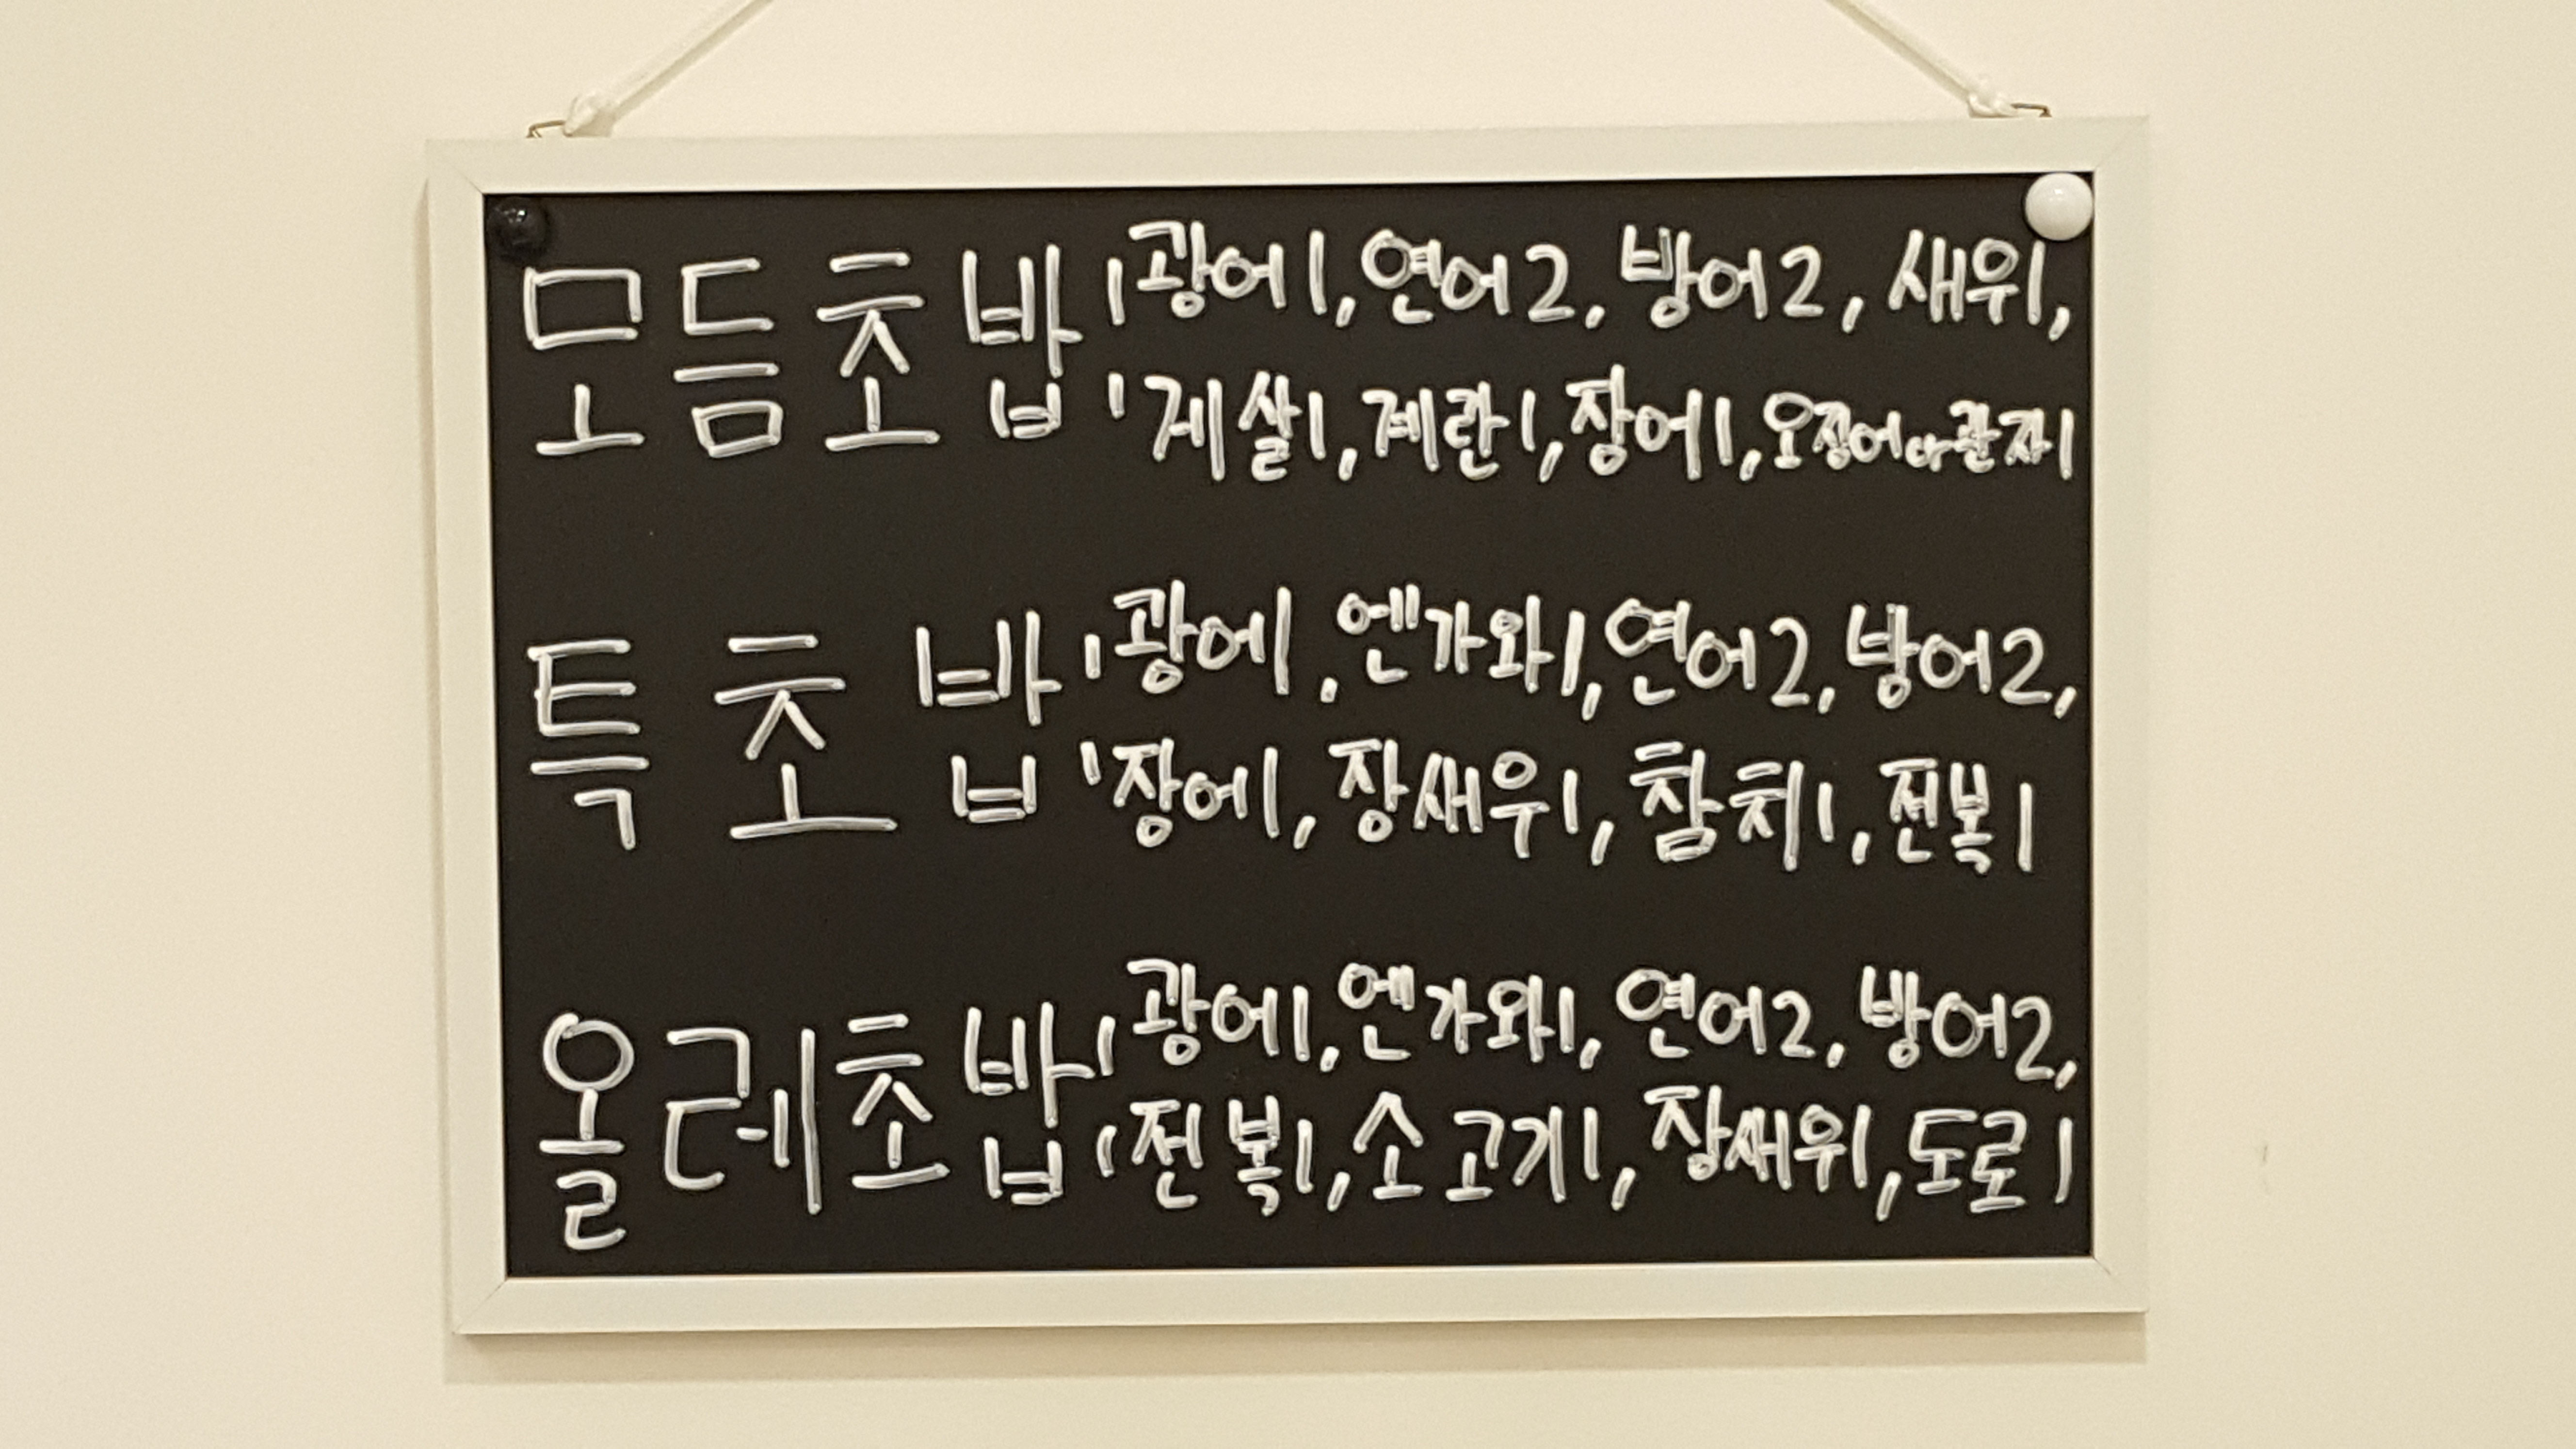 모듬초밥 광어1, 연어2, 방어2, 새우1,
게살1, 계란1, 장어1, 오징어or관자1
특초밥 광어1, 엔가와1, 연어2, 방어2,
장어1, 장새우1, 참치1, 전복1
올레초밥 광어1, 엔가와1, 연어2, 방어2,
전복1, 소고기1, 장새우1, 도로1